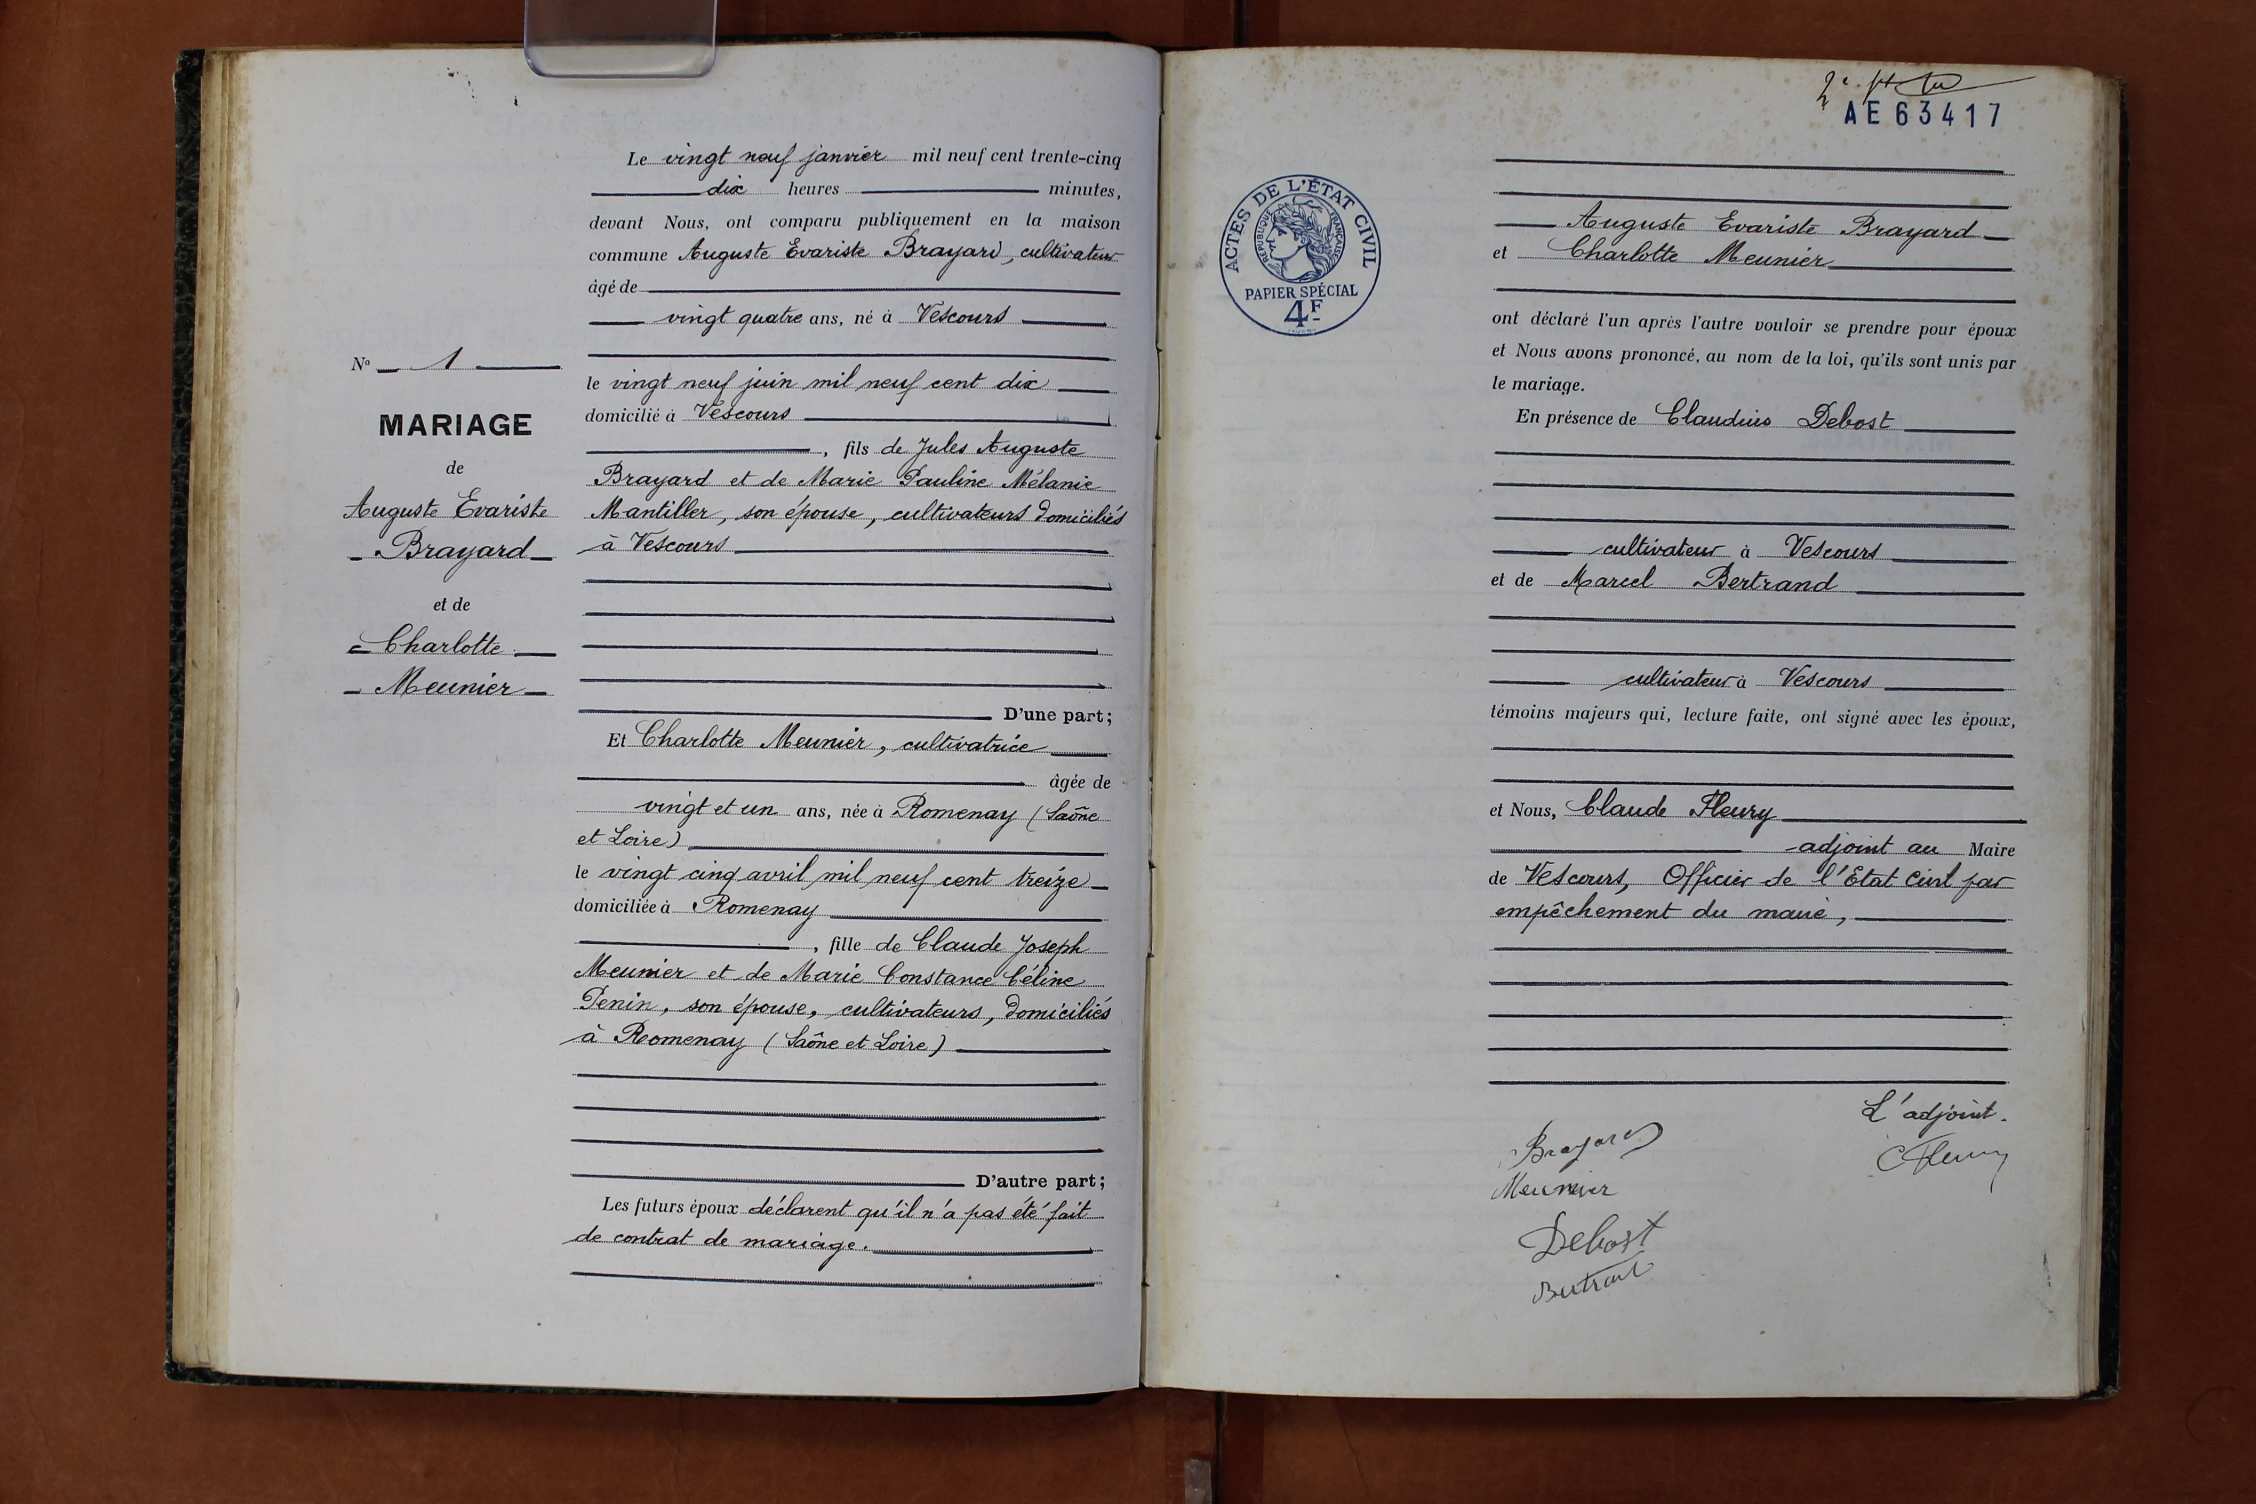 Le vingt neuf janvier mil neuf cent trente-cinq
dix heures minutes,
devant Nous, ont comparu publiquement en la maison
commune Auguste Evariste Brayard, cultivateur
âgé de
vingt quatre ans, né à Vescours
le vingt neuf juin mil neuf cent dix
domicilié à Vescours
, fils de Jules Auguste
Brayard et de Marie Pauline Mélanie
Mantiller, son épouse, cultivateurs domiciliés
à Vescours
D'une part;
Et Charlotte Meunier, cultivatrice
âgée de
vingt et un ans, née à Romenay (Saône
et Loire)
le vingt cinq avril mil neuf cent treize
domiciliée à Romenay
, fille de Claude Joseph
Meunier et de Marie Constance Céline
Penin, son épouse, cultivateurs, domiciliés
à Romenay (Saône et Loire)
D'autre part;
Les futurs époux déclarent qu'il n'a pas été fait
de contrat de mariage.
No 1
MARIAGE
de
Auguste Evariste
Brayard
et de
Charlotte
Meunier
2e
AE63417
ACTES DE L'ÉTAT CIVIL
RÉPUBLIQUE FRANÇAISE
PAPIER SPÉCIAL
4F
Auguste Evariste Brayard
et Charlotte Meunier
ont déclaré l'un après l'autre vouloir se prendre pour époux
et Nous avons prononcé, au nom de la loi, qu'ils sont unis par
le mariage.
En présence de Claudius Debost
cultivateur à Vescours
et de Marcel Bertrand
cultivateur à Vescours
témoins majeurs qui, lecture faite, ont signé avec les époux,
et Nous, Claude Fleury
adjoint au Maire
de Vescours, Officier de l'Etat Civil par
empêchement du maire,
L'adjoint.
Brayard
C Fleury
Meunier
Debost
Bertrand